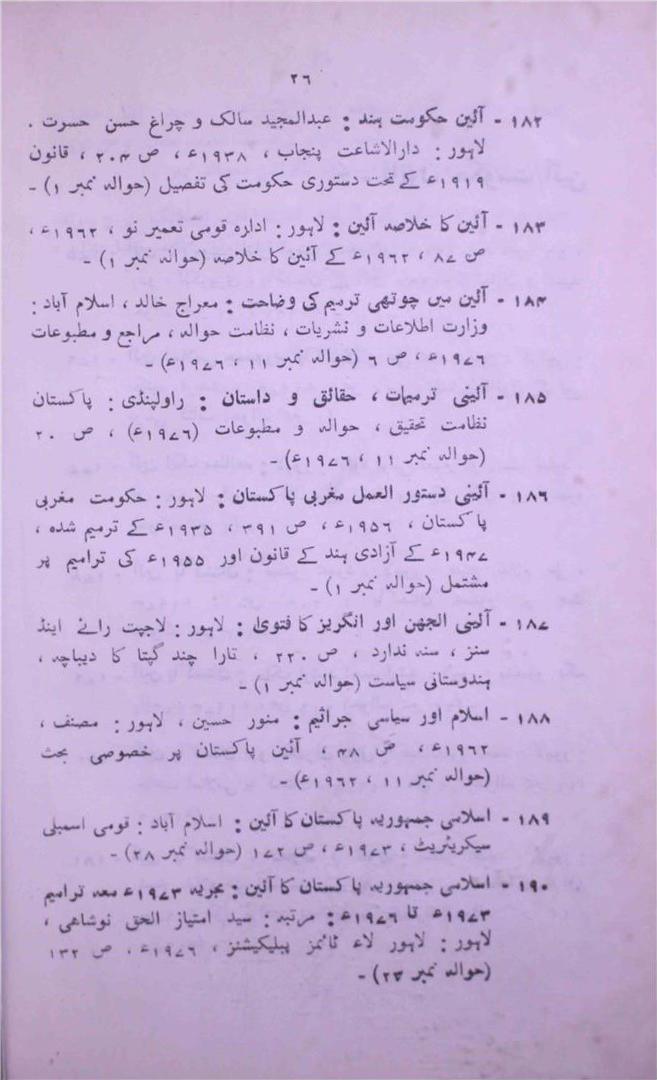 ۲۶
۱۸۲ - آئین حکومت ہند : عبدالمجید سالک و چراغ حسن حسرت .
لاہور : دارالاشاعت پنجاب ، ۱۹۳۸ء ، ص ۲۰۴ ، قانون
۱۹۱۹ء کے تحت دستوری حکومت کی تفصیل (حوالہ نمبر ۱) -
۱۸۳ - آئین کا خلاصہ آئین : لاہور : ادارہ قومی تعمیر نو ، ۱۹۶۲ء ،
ص ۸۷ ، ۱۹۶۲ء کے آئین کا خلاصہ (حوالہ نمبر ۱) -
۱۸۴ - آئین میں چوتھی ترمیم کی وضاحت : معراج خالد ، اسلام آباد :
وزارت اطلاعات و نشریات ، نظامت حوالہ ، مراجع و مطبوعات
۱۹۷۶ء ، ص ۶ (حوالہ نمبر ۱۱ ، ۱۹۷۶ء) -
۱۸۵ - آئینی ترمیمات ، حقائق و داستان : راولپنڈی : پاکستان
نظامت تحقیق ، حوالہ و مطبوعات (۱۹۷۶ء) ، ص ۲۰
(حوالہ نمبر ۱۱ ، ۱۹۷۶ء) -
۱۸۶ - آئینی دستور العمل مغربی پاکستان : لاہور : حکومت مغربی
پاکستان ، ۱۹۵۶ء ، ص ۳۹۱ ، ۱۹۳۵ء کے ترمیم شدہ ،
۱۹۴۷ء کے آزادی ہند کے قانون اور ۱۹۵۵ء کی ترامیم پر
مشتمل (حوالہ نمبر ۱) -
۱۸۷ - آئینی الجھن اور انگریز کا فتویٰ : لاہور : لاجپت رائے اینڈ
سنز ، سنہ ندارد ، ص ۲۲۰ ، تارا چند گپتا کا دیباچہ ،
ہندوستانی سیاست (حوالہ نمبر ۱) -
۱۸۸ - اسلام اور سیاسی جرائیم : منور حسین ، لاہور : مصنف ،
۱۹۶۲ء ، ص ۴۸ ، آئین پاکستان پر خصوصی بحث
(حوالہ نمبر ۱۱ ، ۱۹۶۲ء) -
۱۸۹ - اسلامی جمہوریہ پاکستان کا آئین : اسلام آباد : قومی اسمبلی
سیکریٹریٹ ، ۱۹۷۳ء ، ص ۱۷۲ (حوالہ نمبر ۲۸) -
۱۹۰ - اسلامی جمہوریہ پاکستان کا آئین : مجریہ ۱۹۷۳ء معہ ترامیم
۱۹۷۳ء تا ۱۹۷۶ء : مرتبہ : سید امتیاز الحق نوشاهی ،
لاہور : لاہور لاء ٹائمز پبلیکیشنز ، ۱۹۷۶ء ، ص ۱۳۲
(حوالہ نمبر ۲۳) -